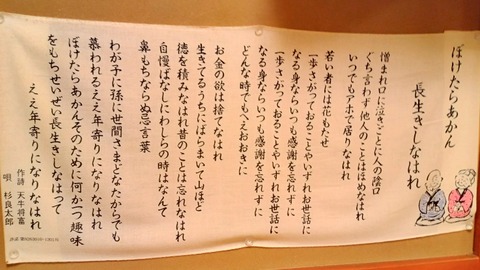 ぼけたらあかん
長生きしなはれ
憎まれ口に泣きごとに人の陰口
ぐち言わず他人のことはほめなはれ
いつでもアホで居りなはれ
若い者には花もたせ
一歩さがっておることやいずれお世話に
なる身ならいつも感謝を忘れずに
一歩さがっておることやいずれお世話に
なる身ならいつも感謝を忘れずに
どんな時でもへえおおきに
お金の欲は捨てなはれ
生きてるうちにばらまいて山ほど
徳を積みなはれ昔のことは忘れなはれ
自慢ばなしにわしらの時はなんて
鼻もちならぬ忌言葉
わが子に孫に世間さまどなたからでも
慕われるええ年寄りになりなはれ
ぼけたらあかんそのために何か一つ趣味
をもちせいぜい長生きしなはって
ええ年寄りになりなはれ
作詩 天牛将富
唄 杉良太郎